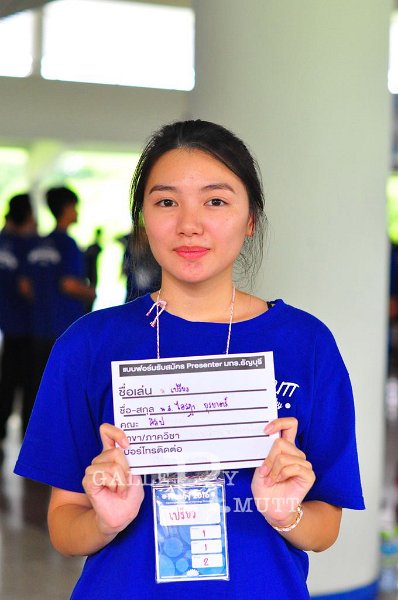 แบบฟอร์มรับสมัคร Presenter มทร.ธัญบุรี
ชื่อเล่น เปรี้ยว
ชื่อ-สกุล น.ส.
คณะ ศิลป์
สาขา/ภาควิชา
เบอร์โทรติดต่อ
GALLERY
RMUTT
2016
เปรี้ยว
1
1
2